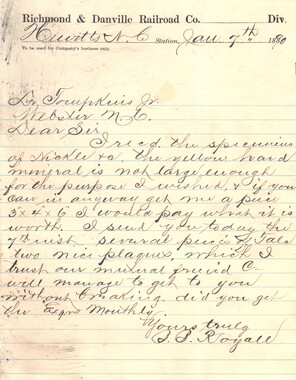 Richmond & Danville Railroad Co. Div.
Hewitts N. C. Station, Jan. 7th 1890
To be used for Company's business only.
Dr Tompkins Jr.
Webster N. C.
Dear Sir
I recd. the specimens
of Nickle &c. the yellow hard
mineral is not large enough
for the purpose I wished, & if you
can in anyway get me a piece
3 x 4 x 6 I would pay what it is
worth. I send you today the
7th inst several pieces of Talc
two nice plaques, which I
trust our mutual friend C-
will manage to get to you
without breaking. did you get
the Monthly.
Yours truly
Royall